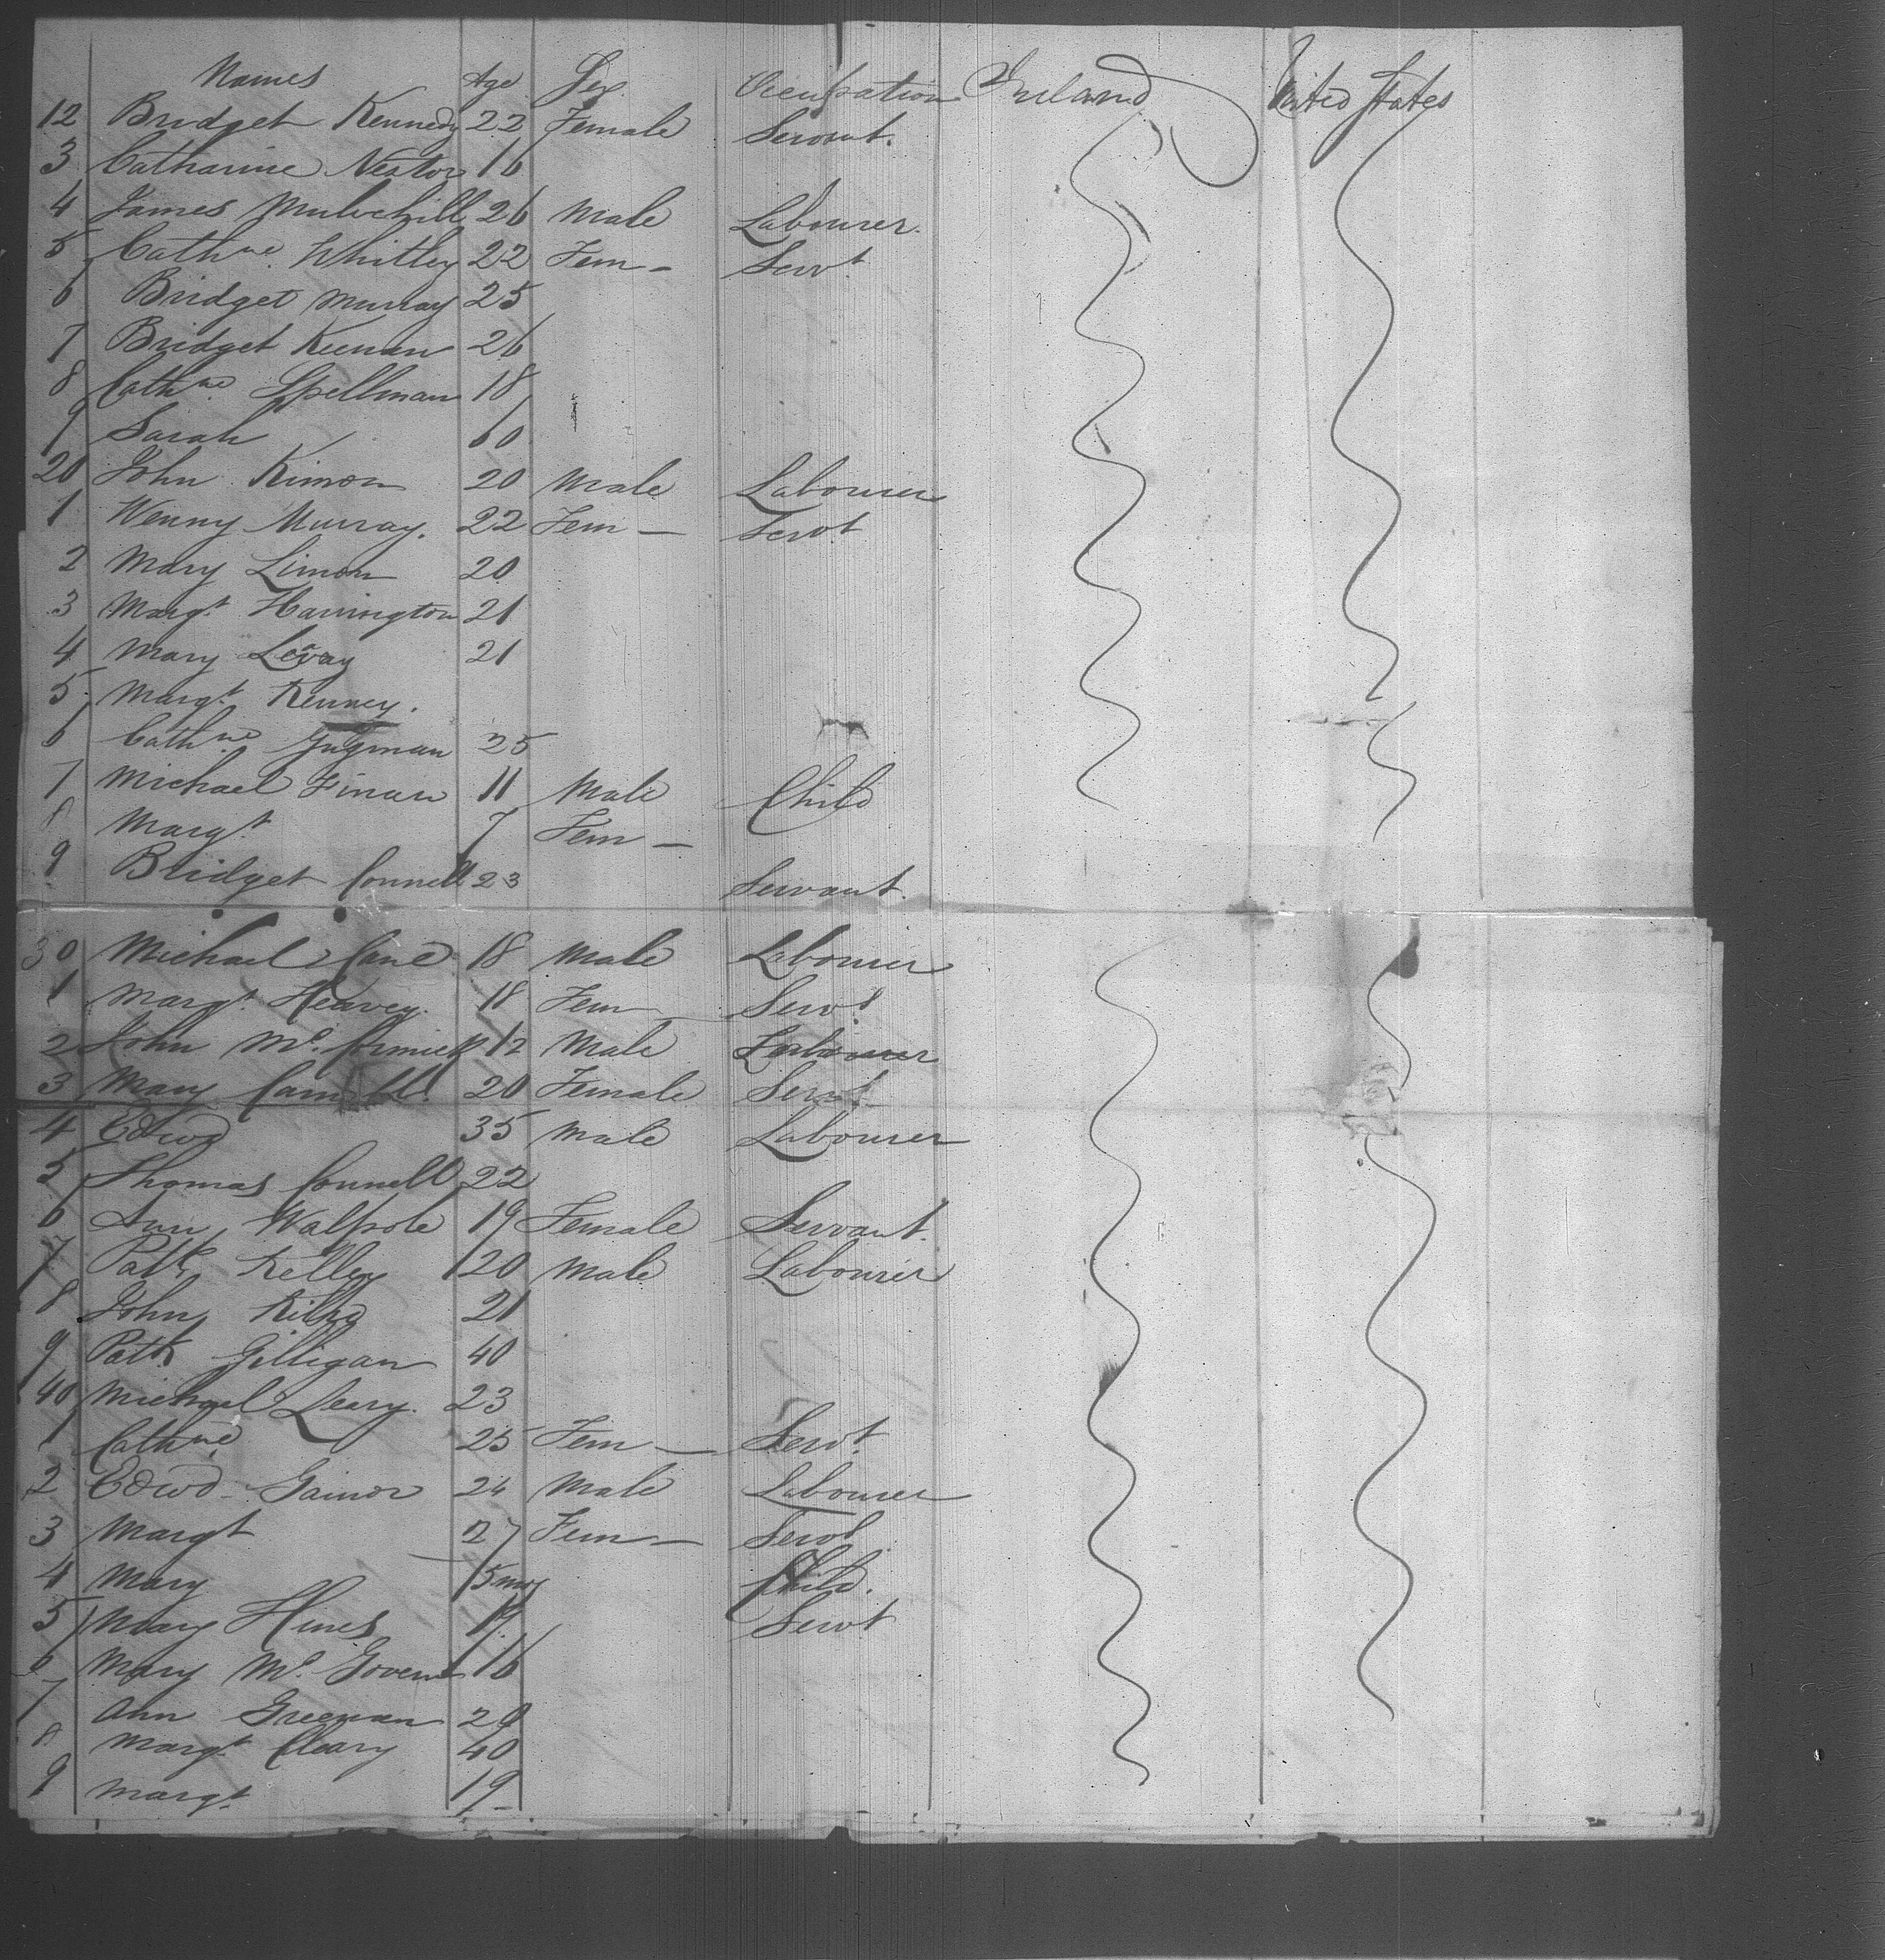 Names Age Sex Occupation Ireland United States
12 Bridget Kennedy 22 Female Servant.
3 Catharine Nestor 16
4 James Mulvehill 26 Male Labourer.
5 Cathne Whitley 22 Fem - Servt
6 Bridget Murray 25
7 Bridget Keenan 26
8 Cathne Spellman 18
9 Sarah 60
20 John Kimon 20 Male Labourer
1 Wenny Murray. 22 Fem - Servt
2 Mary Limon 20
3 Margt Harrington 21
4 Mary Levay 21
5 Margt Kenney.
6 Cathne 25
7 Michael Finan 11 Male Child
8 Margt 7 Fem -
9 Bridget Connell 23 Servant.
30 Michael Cane 18 Male Labourer
1 Margt Heavey. 18 Fem Servt
2 John Mc. Cormick 12 Male Labourer
3 Mary 20 Female Servt
4 Edwd 35 Male Labourer
5 Thomas Connell 22
6 Ann Walpole 19 Female Servant.
7 Patk Kelley 20 Male Labourer
8 John 21
9 Patk Gilligan 40
40 Michael Leary. 23
1 Cathne 25 Fem - Servt.
2 Edwd Gainor 24 Male Labourer
3 Margt 27 Fem - Servt
4 Mary 5 mos Child.
5 Mary Hines 19 Servt
6 Mary Mc. Govern 16
7 Ann Greenan 20
8 Margt Cleary 40
9 Margt 19